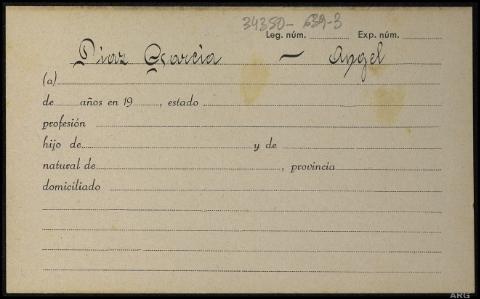 34350- 639-3
Leg. núm. Exp. núm.
Diaz Garcia — Angel
(a)
de años en 19 , estado
profesión
hijo de y de
natural de , provincia
domiciliado
ARG